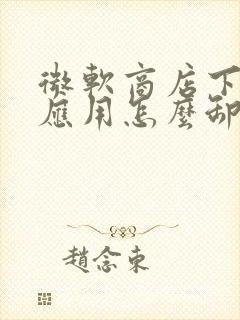 微軟商店下
應用怎麼卸
趙念東